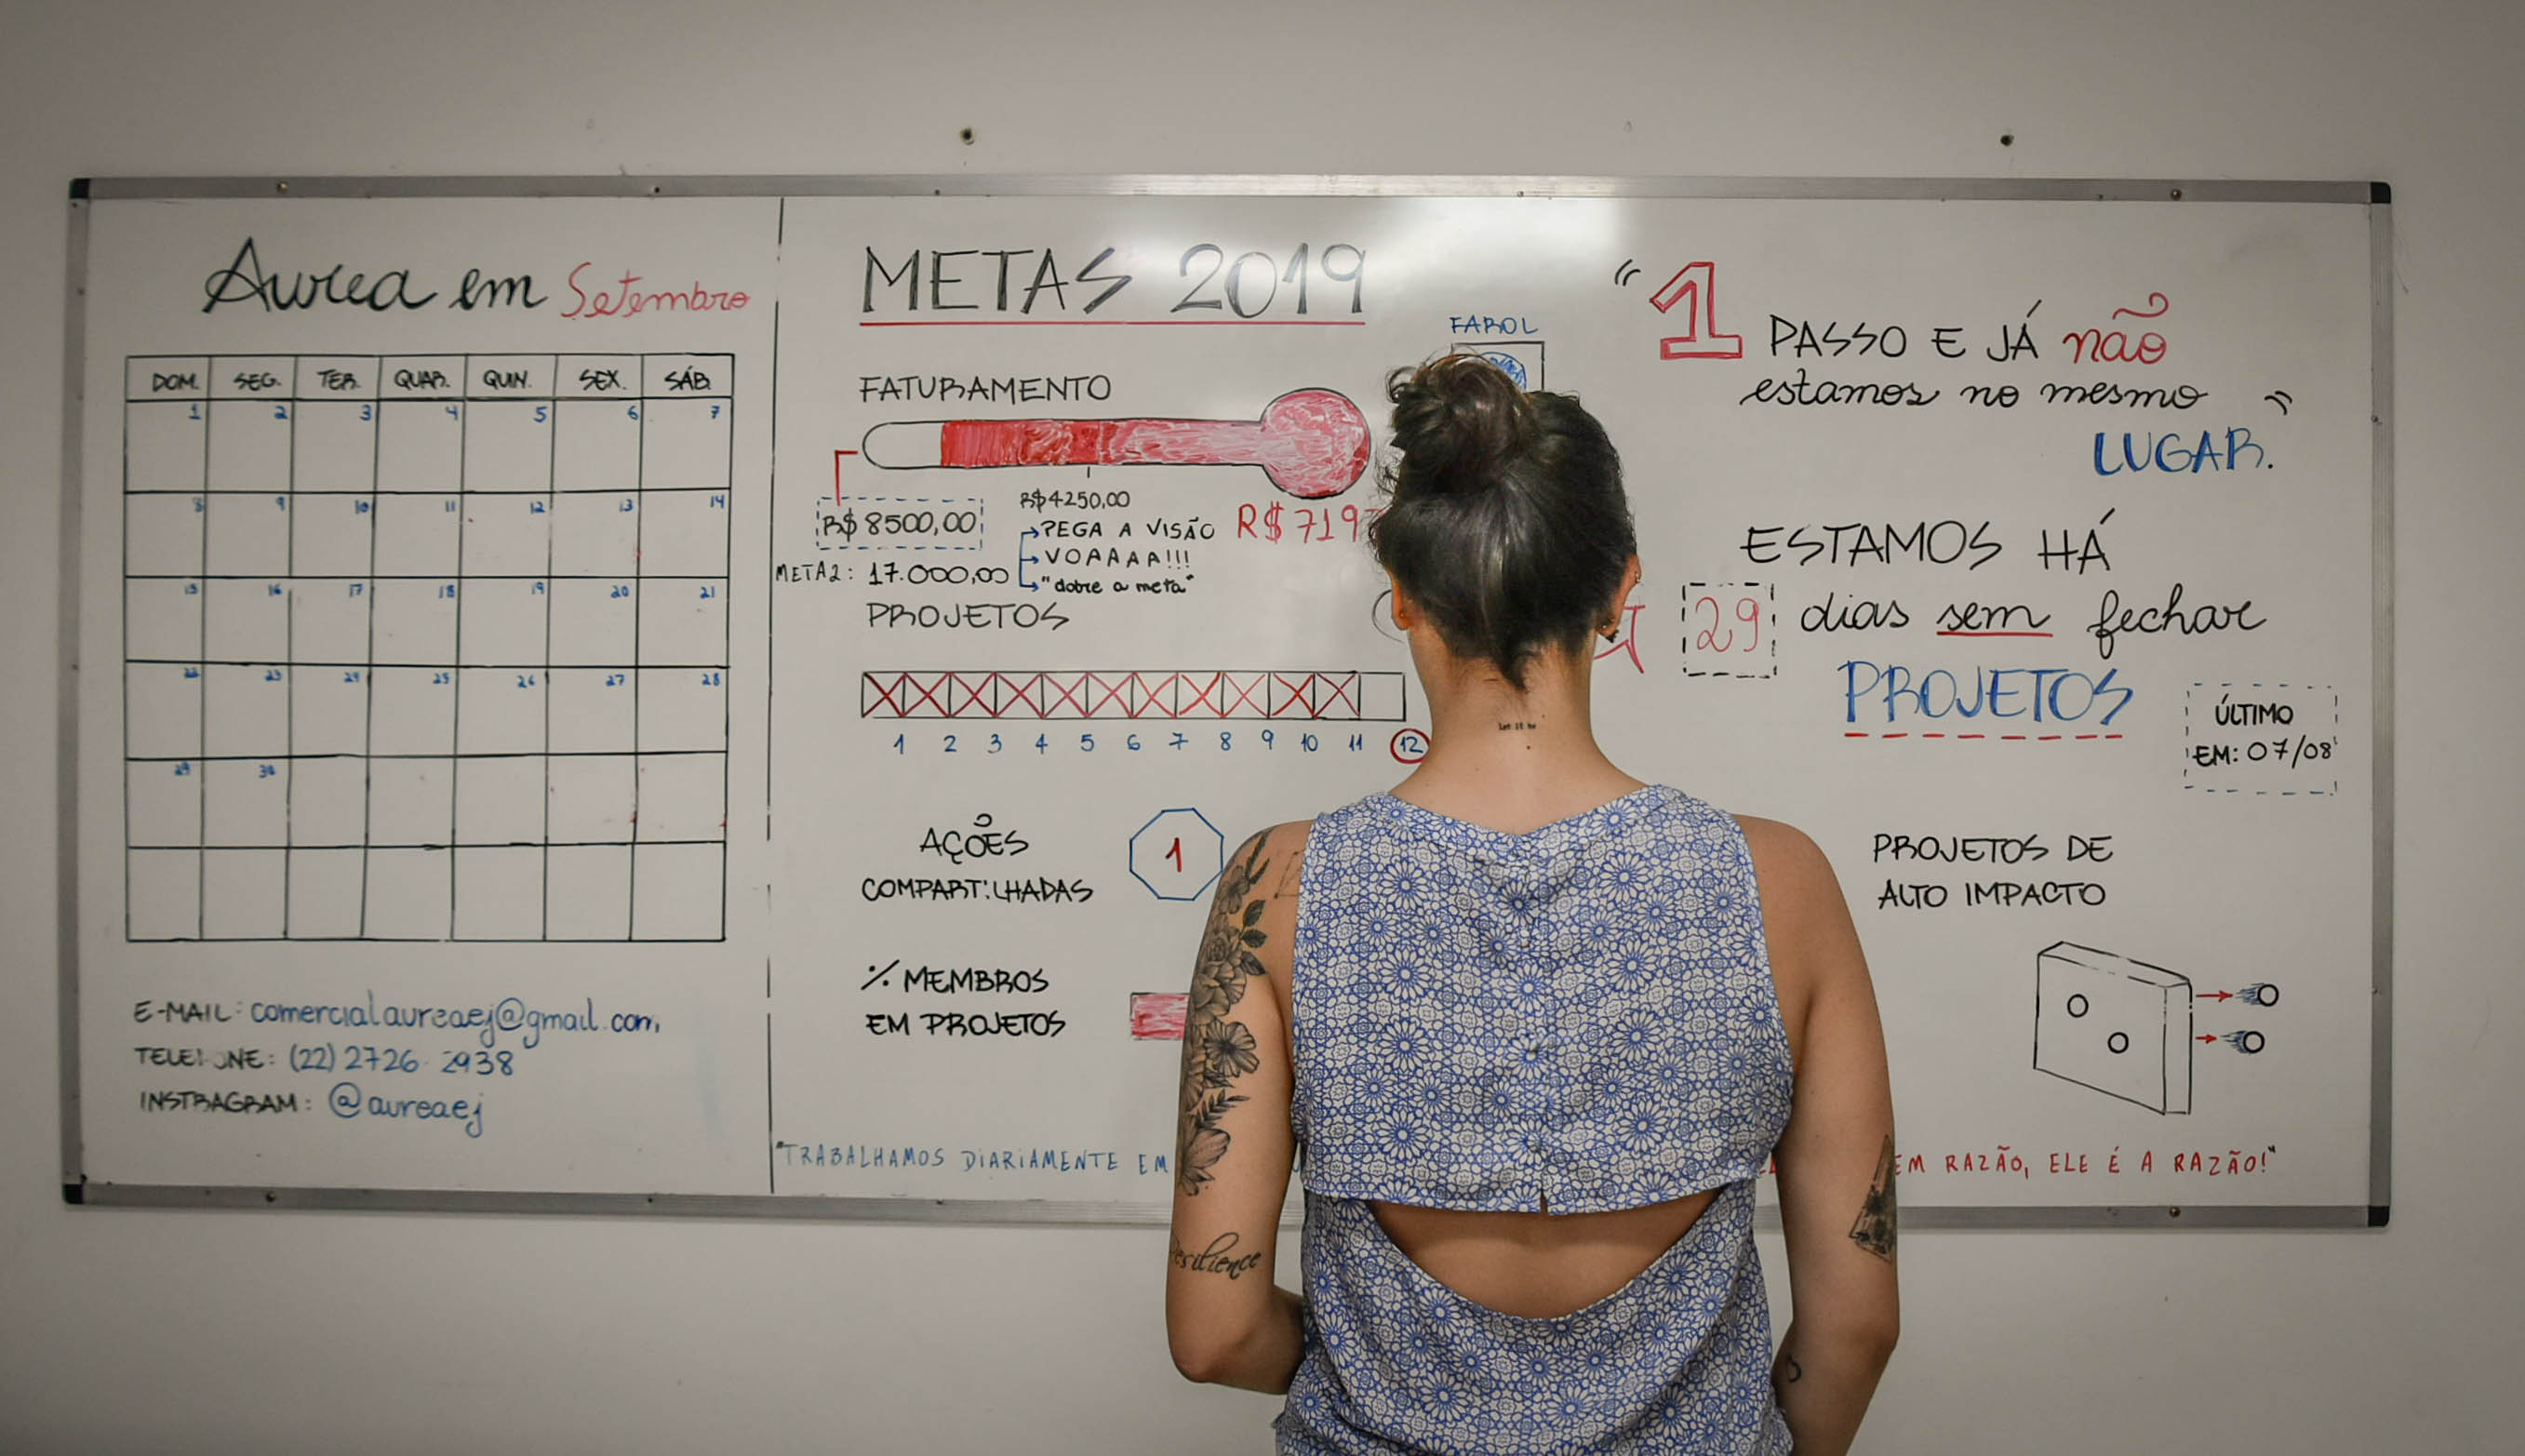 Aurea em Setembro
DOM. SEG. TER. QUAR. QUIN. SEX. SÁB.
1 2 3 4 5 6 7
8 9 10 11 12 13 14
15 16 17 18 19 20 21
22 23 24 25 26 27 28
29 30
E-MAIL: comercialaureaej@gmail.com
(22) 2726 2938
INSTRAGRAM: @aureaej
METAS 2019
FAROL
FATURAMENTO
R$ 8500,00
R$4250,00
PEGA A VISÃO
VOAAAA!!!
"dobre a meta"
R$ 719
META2: 17.000,00
PROJETOS
1 2 3 4 5 6 7 8 9 10 11 12
AÇÕES
COMPARTILHADAS
1
% MEMBROS
EM PROJETOS
"TRABALHAMOS DIARIAMENTE EM
EM RAZÃO, ELE É A RAZÃO!"
"1 PASSO E JÁ não
estamos no mesmo "
LUGAR.
ESTAMOS HÁ
29 dias sem fechar
PROJETOS
ÚLTIMO
EM: 07/08
PROJETOS DE
ALTO IMPACTO
let it be
Resilience